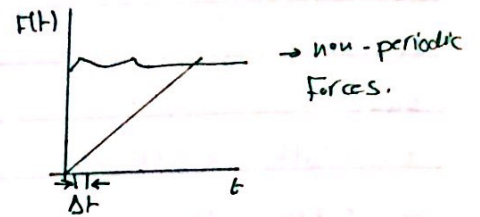 F(t)
→ non-periodic
forces.
t
Δt